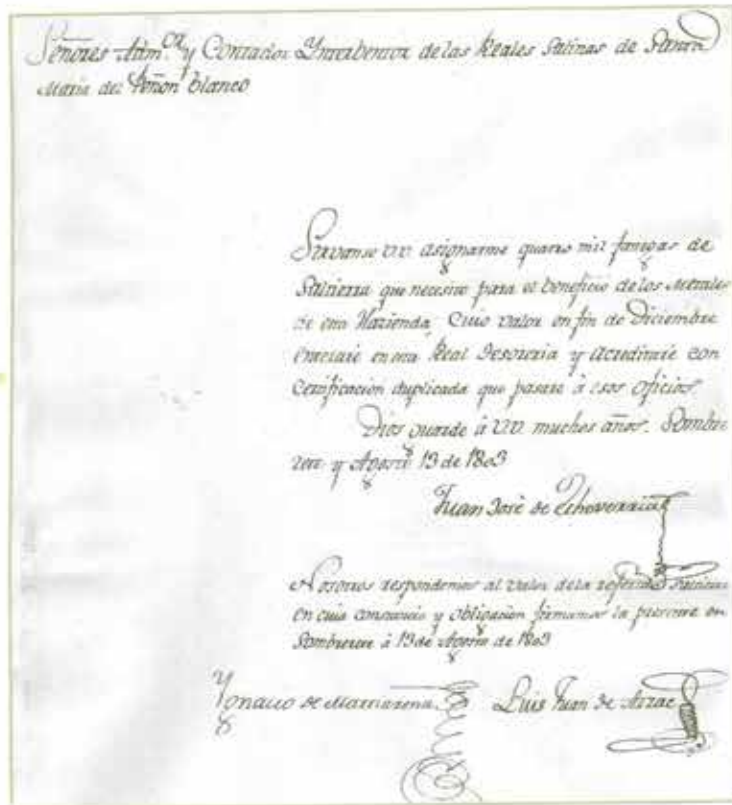 Señores Adm.or y Contador Ynterbentor de las Reales Salinas de Santa
Maria del Peñon blanco
Sirvanse VV. asignarme quatro mil fanegas de
Saltierra que necesito para el beneficio de los Metales
de esta Hazienda, Cuio valor en fin de Diciembre
enteraré en esa Real Tesoreria y acreditaré con
Certificacion duplicada que pasare à esos oficios.
Dios guarde à VV. muchos años. Sombre
rete y Agosto 13 de 1803
Juan José de Echeverria
Nosotros respondemos al valor de la referida Saltierra
en cuia constancia y obligacion firmamos la presente en
Sombrerete à 13 de Agosto de 1803
Ygnacio de Luis Juan de Arzac